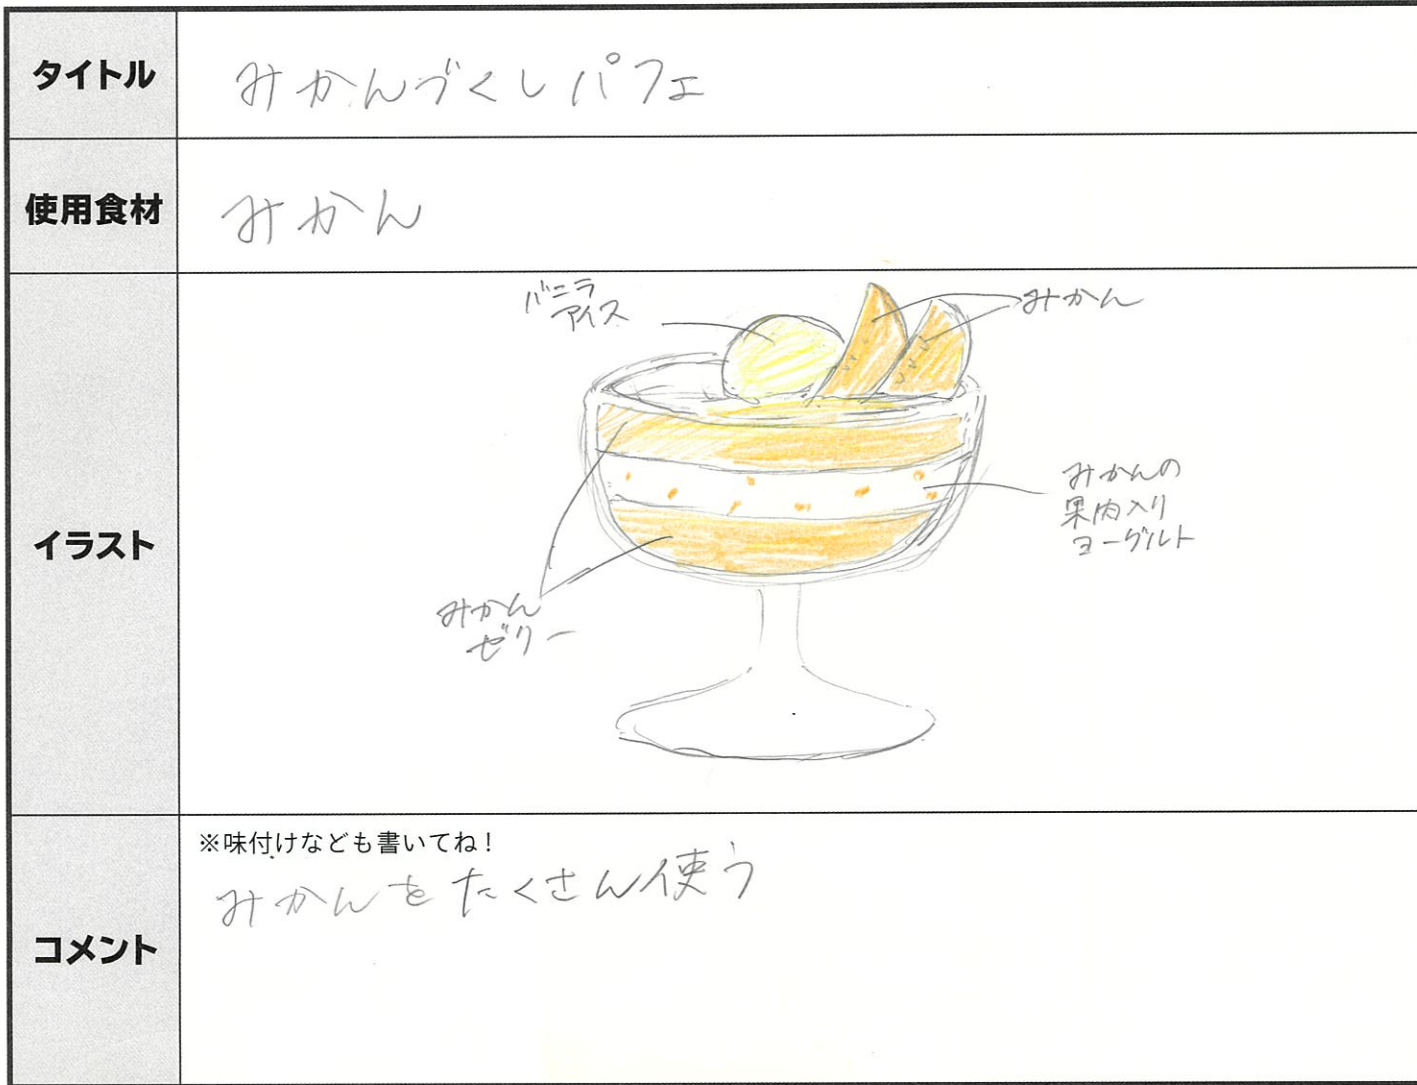 タイトル
みかんづくしパフェ
使用食材
みかん
イラスト
バニラ
アイス
みかん
みかんの
果肉入り
ヨーグルト
みかん
ゼリー
コメント
※味付けなども書いてね!
みかんをたくさん使う